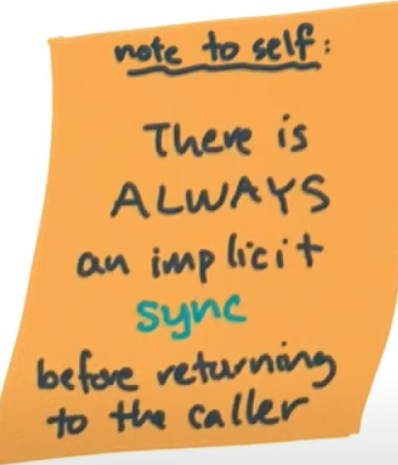 note to self:
There is
ALWAYS
an implicit
sync
before returning
to the caller